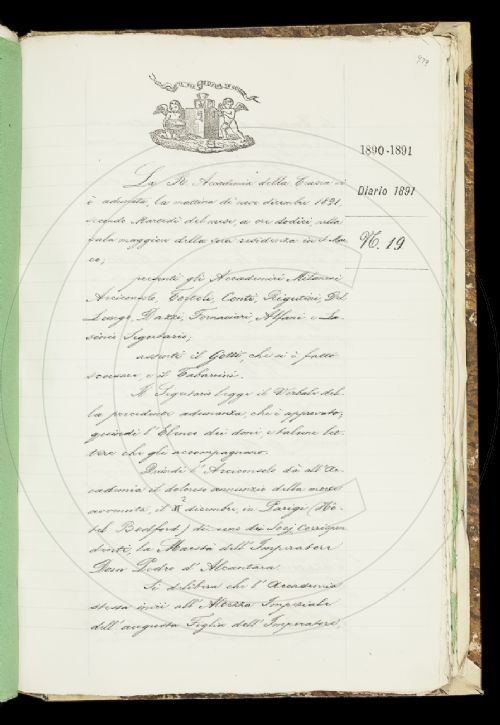 1890-1891
Diario 1891
N. 19
La R. Accademia della Crusca si
è adunata, la mattina di nove dicembre 1891,
secondo Martedì del mese, a ore dodici, nella
sala maggiore della sua residenza in S. Mar
co;
presenti gli Accademici Milanesi
Arciconsolo, Tortoli, Conti, Rigutini, Del
Lungo, Dazzi, Tornaciari, Alfani e La-
sinio Segretario;
assenti il Gotti, che si è fatto
scusare e il Tabarrini.
Il Segretario legge il Verbale del-
la precedente adunanza, che è approvato;
quindi l'Elenco dei doni, e talune let-
tere che gli accompagnano.
Quindi l'Arciconsolo dà all'Ac-
cademia il doloroso annunzio della morte
avvenuta, il 2 dicembre in Parigi (Hô-
tel Bedford) di uno dei Socj Corrispon
denti, la Maestà dell'Imperatore
Dom Pedro d'Alcantara.
Si delibera che l'Accademia
stessa invii all'Altezza Imperiale
dell'augusta Figlia dell'Imperatore,